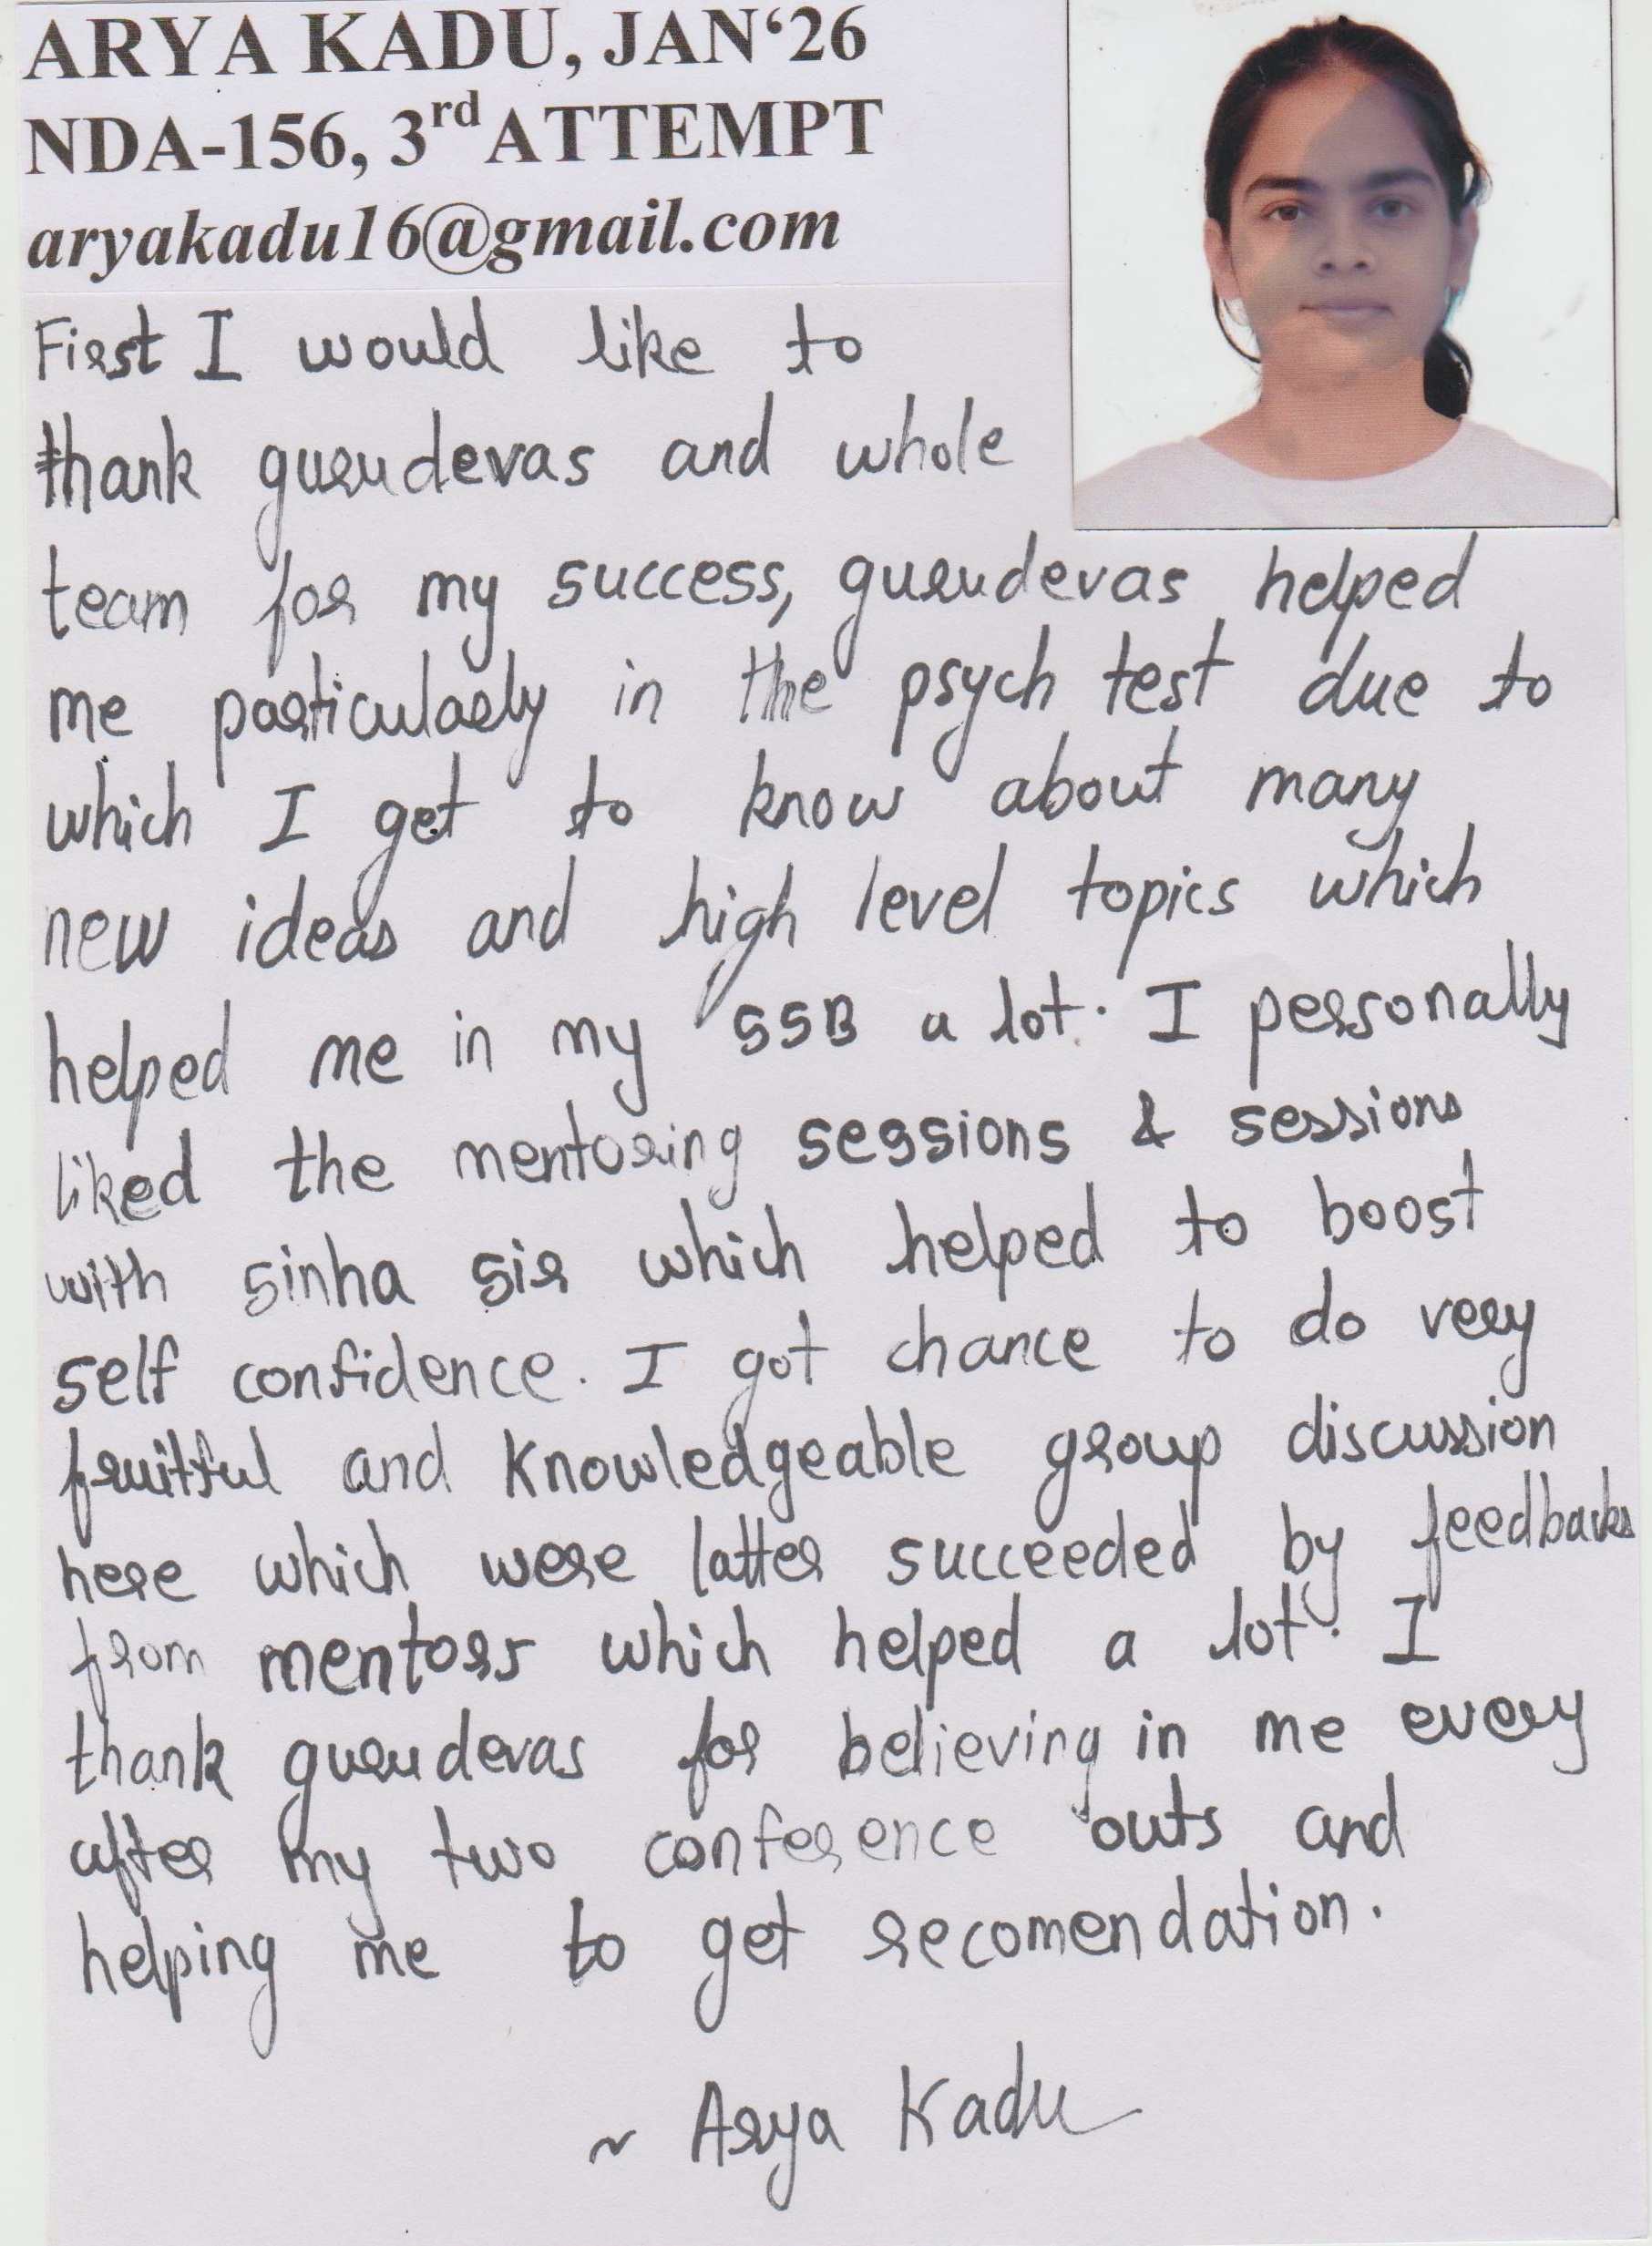 ARYA KADU, JAN‘26
NDA-156, 3rd ATTEMPT
aryakadu16@gmail.com
First I would like to
thank gurudevas and whole
team for my success, gurudevas helped
me particularly in the psych test due to
which I get to know about many
new ideas and high level topics which
helped me in my SSB a lot. I personally
liked the mentoring sessions & sessions
with sinha sir which helped to boost
self confidence. I got chance to do very
fruitful and knowledgeable group discussion
here which were latter succeeded by feedbacks
from mentors which helped a lot. I
thank gurudevas for believing in me every
after my two conference outs and
helping me to get recomendation.
~ Arya Kadu